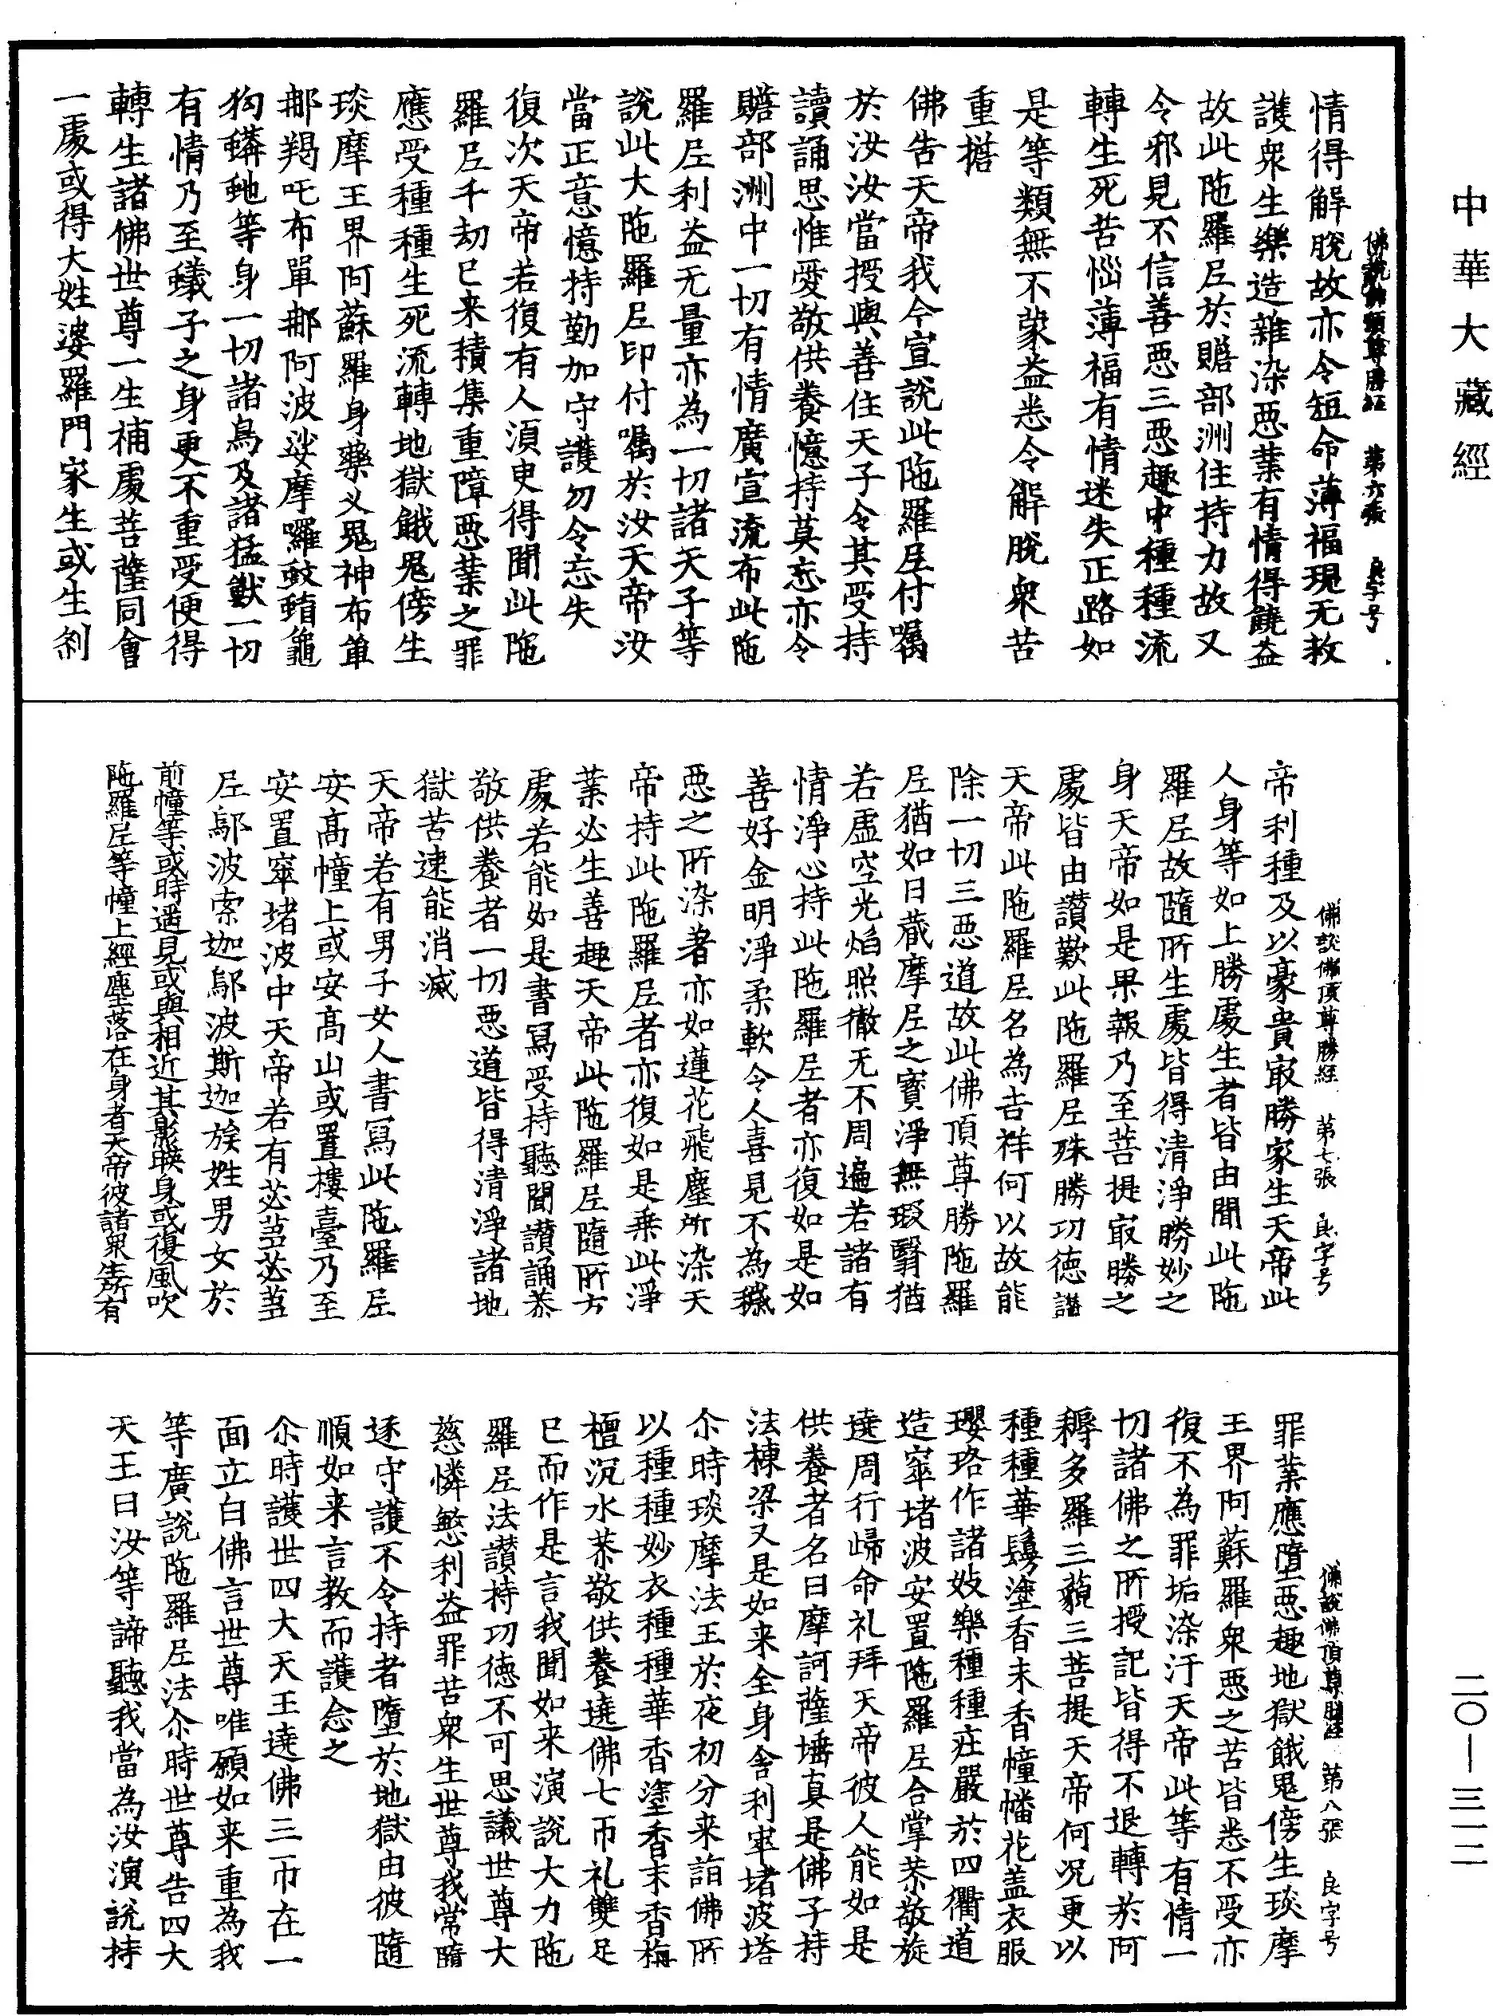 中華大藏經
佛說佛頂尊勝經　第六張　良字号
情得解脫故亦令短命薄福現无救
護衆生樂造雜染惡業有情得饒益
故此陁羅尼於贍部洲住持力故又
令邪見不信善惡三惡趣中種種流
轉生死苦惱薄福有情迷失正路如
是等類無不蒙益悉令解脫衆苦
重擔
佛告天帝我今宣說此陁羅尼付囑
於汝汝當授與善住天子令其受持
讀誦思惟愛敬供養憶持莫忘亦令
贍部洲中一切有情廣宣流布此陁
羅尼利益无量亦為一切諸天子等
說此大陁羅尼印付囑於汝天帝汝
當正意憶持勤加守護勿令忘失
復次天帝若復有人須臾得聞此陁
羅尼千劫已来積集重障惡業之罪
應受種種生死流轉地獄餓鬼傍生
琰摩王界阿蘇羅身藥义鬼神布單
那羯吒布單那阿波娑摩囉蚊蝱龜
狗蟒虵等身一切諸鳥及諸猛獸一切
有情乃至蟻子之身更不重受便得
轉生諸佛世尊一生補處菩薩同會
一處或得大姓婆羅門家生或生剎
佛說佛頂尊勝經　第七張　良字号
帝利種及以豪貴冣勝家生天帝此
人身等如上勝處生者皆由聞此陁
羅尼故隨所生處皆得清淨勝妙之
身天帝如是果報乃至菩提冣勝之
處皆由讚歎此陁羅尼殊勝功德諧
天帝此陁羅尼名為吉祥何以故能
除一切三惡道故此佛頂尊勝陁羅
尼猶如日藏摩尼之寶淨無瑕翳猶
若虛空光焰照徹无不周遍若諸有
情淨心持此陁羅尼者亦復如是如
善好金明淨柔軟令人喜見不為穢
惡之所染著亦如蓮花飛塵所染天
帝持此陁羅尼者亦復如是乘此淨
業必生善趣天帝此陁羅尼隨所方
處若能如是書寫受持聽聞讃誦恭
敬供養者一切惡道皆得清淨諸地
獄苦速能消滅
天帝若有男子女人書寫此陁羅尼
安高幢上或安高山或置樓臺乃至
安置窣堵波中天帝若有苾芻苾芻
尼鄔波索迦鄔波斯迦族姓男女於
前幢等或時遇見或與相近其影映身或復風吹
陁羅尼等幢上經塵落在身者天帝彼諸衆生所有
佛說佛頂尊勝經　第八張　良字号
罪業應墮惡趣地獄餓鬼傍生琰摩
王界阿蘇羅衆惡之苦皆悉不受亦
復不為罪垢染汙天帝此等有情一
切諸佛之所授記皆得不退轉於阿
耨多羅三藐三菩提天帝何況更以
種種華鬘塗香末香幢幡花盖衣服
瓔珞作諸妓樂種種莊嚴於四衢道
造窣堵波安置陁羅尼合掌恭敬旋
遶周行歸命礼拜天帝彼人能如是
供養者名曰摩訶薩埵真是佛子持
法棟梁又是如来全身舍利窣堵波塔
尒時琰摩法王於夜初分来詣佛所
以種種妙衣種種華香塗香末香栴
檀沉水恭敬供養遶佛七帀礼雙足
已而作是言我聞如来演說大力陁
羅尼法讃持功德不可思議世尊大
慈憐愍利益罪苦衆生世尊我常隨
逐守護不令持者墮於地獄由彼隨
順如来言教而護念之
尒時護世四大天王遶佛三帀在一
面立白佛言世尊唯願如来重為我
等廣說陁羅尼法尒時世尊告四大
天王曰汝等諦聽我當為汝演說持
二〇—三一二